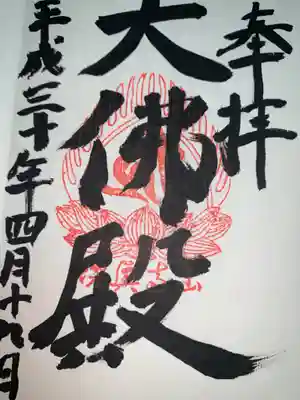 奉拝
大佛殿
平成三十年四月十九日